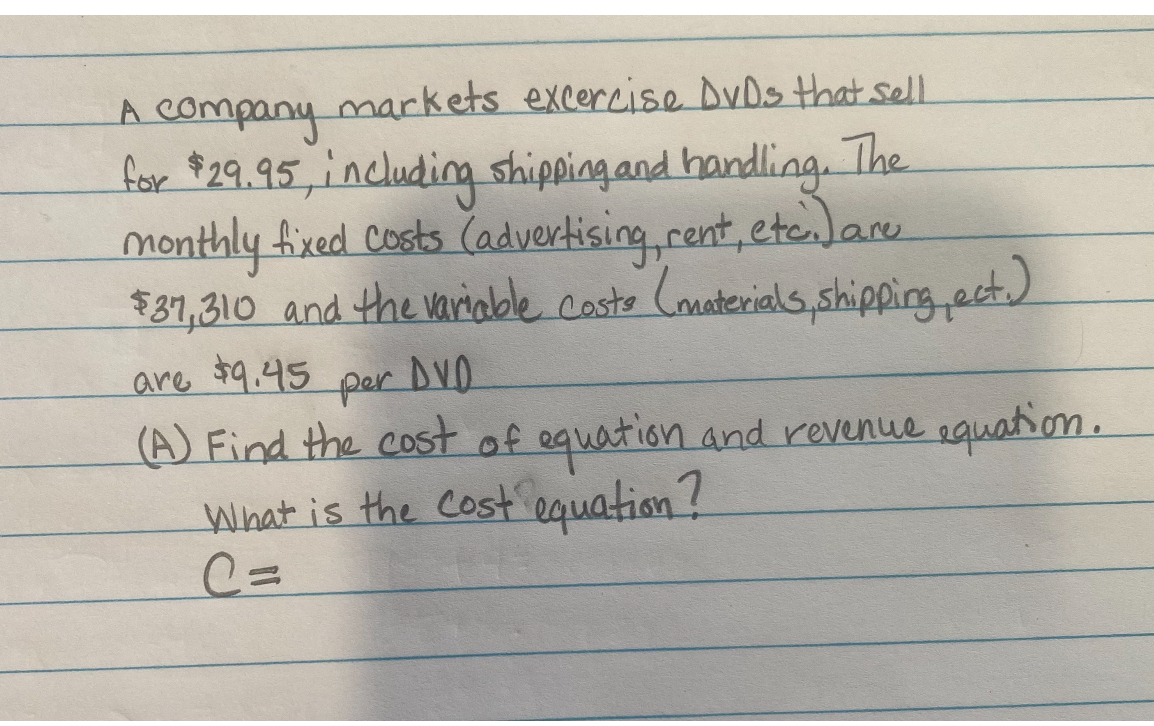 A company markets excercise DVDs that sell
for $29.95, including shipping and handling. The
monthly fixed costs (advertising, rent, etc.) are
$37,310 and the variable costs (materials, shipping, ect.)
are $9.45 per DVD
(A) Find the cost of equation and revenue equation.
What is the cost equation?
C=